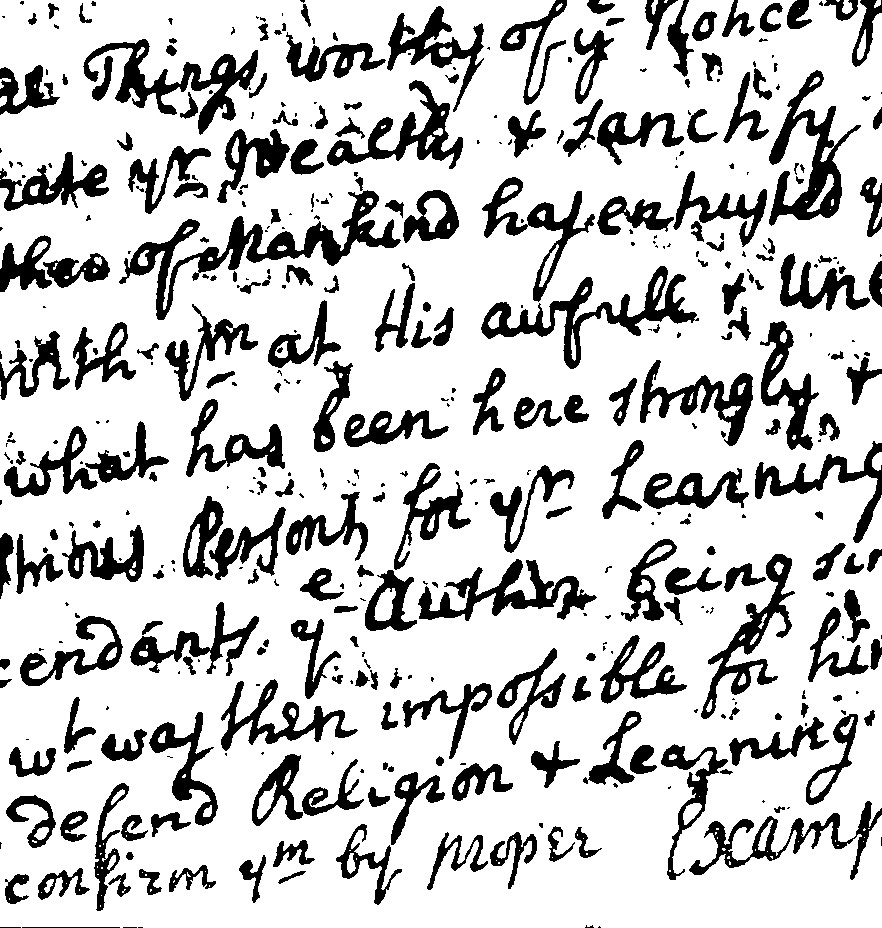 Things, worthy of yᵉ Notice of
yʳ Wealth, & sanctify
of Mankind has entrusted
with yᵐ at His awfull & Une
what has been here strongly &
Persons, for yʳ Learning
cendánts. yᵉ Author being sin
wᵗ was then impossible for him
defend Religion & Learning.
confirm yᵐ by proper Examp